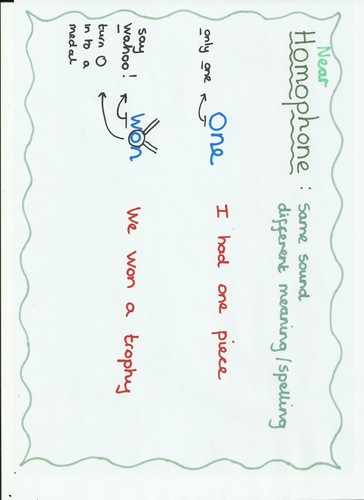 Near
Homophone : Same sound
different meaning/spelling
One
I had one piece
only one
won
We won a trophy
say
wahoo!
turn O
in to a
medal